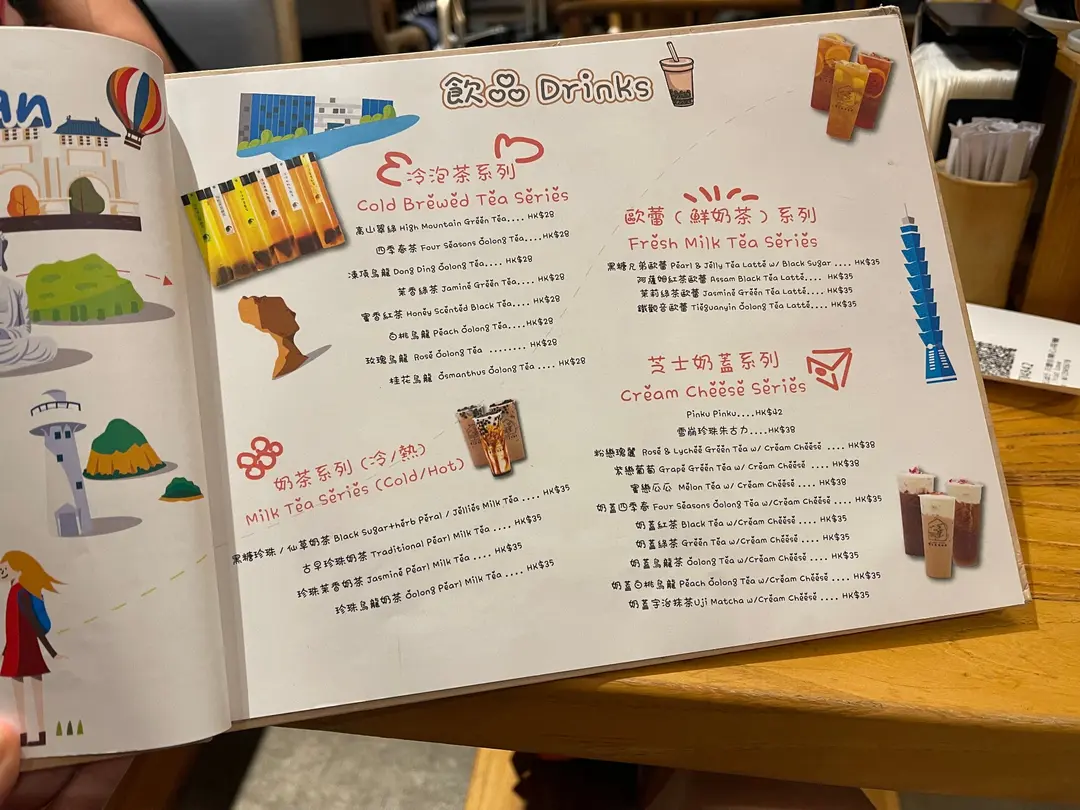 an
飲品 Drinks
冷泡茶系列
Cold Brewed Tea Series
高山翠綠 High Mountain Green Tea.... HK$28
四季春茶 Four Seasons Oolong Tea....HK$28
凍頂烏龍 Dong Ding Oolong Tea.... HK$28
茉香綠茶 Jaminé Green Tea.... HK$28
蜜香紅茶 Honey Scented Black Tea....HK$28
白桃烏龍 Peach Oolong Tea....HK$28
玫瑰烏龍 Rosé Oolong Tea ........ HK$28
桂花烏龍 Osmanthus Oolong Tea .... HK$28
奶茶系列 (冷/熱)
Milk Tea Series (Cold/Hot)
黑糖珍珠 / 仙草奶茶 Black Sugar+herb Peral / Jellies Milk Tea .... HK$35
古早珍珠奶茶 Traditional Pearl Milk Tea .... HK$35
珍珠茉香奶茶 Jasmine Pearl Milk Tea .... HK$35
珍珠烏龍奶茶 Oolong Pearl Milk Tea .... HK$35
歐蕾 ( 鮮奶茶 ) 系列
Fresh Milk Tea Series
黑糖兄弟歐蕾 Pearl & Jelly Tea Latte w/ Black Sugar .... HK$35
阿薩姆紅茶歐蕾 Assam Black Tea Latte.... HK$35
茉莉綠茶歐蕾 Jasmine Green Tea Latte.... HK$35
鐵觀音歐蕾 Tieguanyin Oolong Tea Latte.... HK$35
芝士奶蓋系列
Cream Cheese Series
Pinku Pinku....HK$42
雪崩珍珠朱古力....HK$38
粉戀瑰麗 Rose & Lychee Green Tea w/ Cream Cheese .... HK$38
紫戀葡萄 Grape Green Tea w/ Cream Cheese .... HK$38
蜜戀瓜瓜 Melon Tea w/ Cream Cheese .... HK$38
奶蓋四季春 Four Seasons Oolong Tea w/Cream Cheese .... HK$35
奶蓋紅茶 Black Tea w/Cream Cheese .... HK$35
奶蓋綠茶 Green Tea w/Cream Cheese .... HK$35
奶蓋烏龍茶 Oolong Tea w/Cream Cheese .... HK$35
奶蓋白桃烏龍 Peach Oolong Tea w/Cream Cheese .... HK$35
奶蓋宇治抹茶Uji Matcha w/Cream Cheese .... HK$35